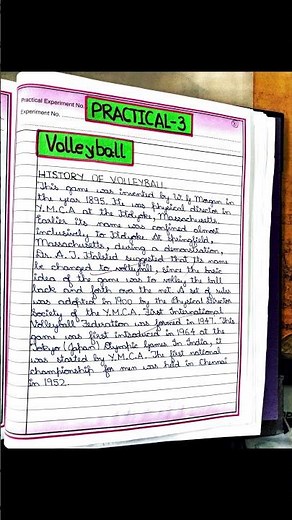 Practical Experiment No.
Experiment No.
PRACTICAL-3
Volleyball
HISTORY OF VOLLEYBALL
This game was invented by W. G Morgan in
the year 1895. He was physical director in
Y.M.C.A at the Holyoke, Massachusetts.
Earlier its name was confined almost
inclusively to Holyoke. At Springfield,
Massachusetts, during a demonstration,
Dr. A. T. Halsted suggested that its name
be changed to volleyball, since the basic
idea of the game was to volley the ball
back and forth over the net. A set of rules
was adopted in 1900 by the Physical Director
Society of the Y.M.C.A. First International
Volleyball Federation was formed in 1947. This
game was first introduced in 1964 at the
Tokyo (Japan) Olympic Games. In India, it
was started by Y.M.C.A. The first national
championship for men was held in Chennai
in 1952.